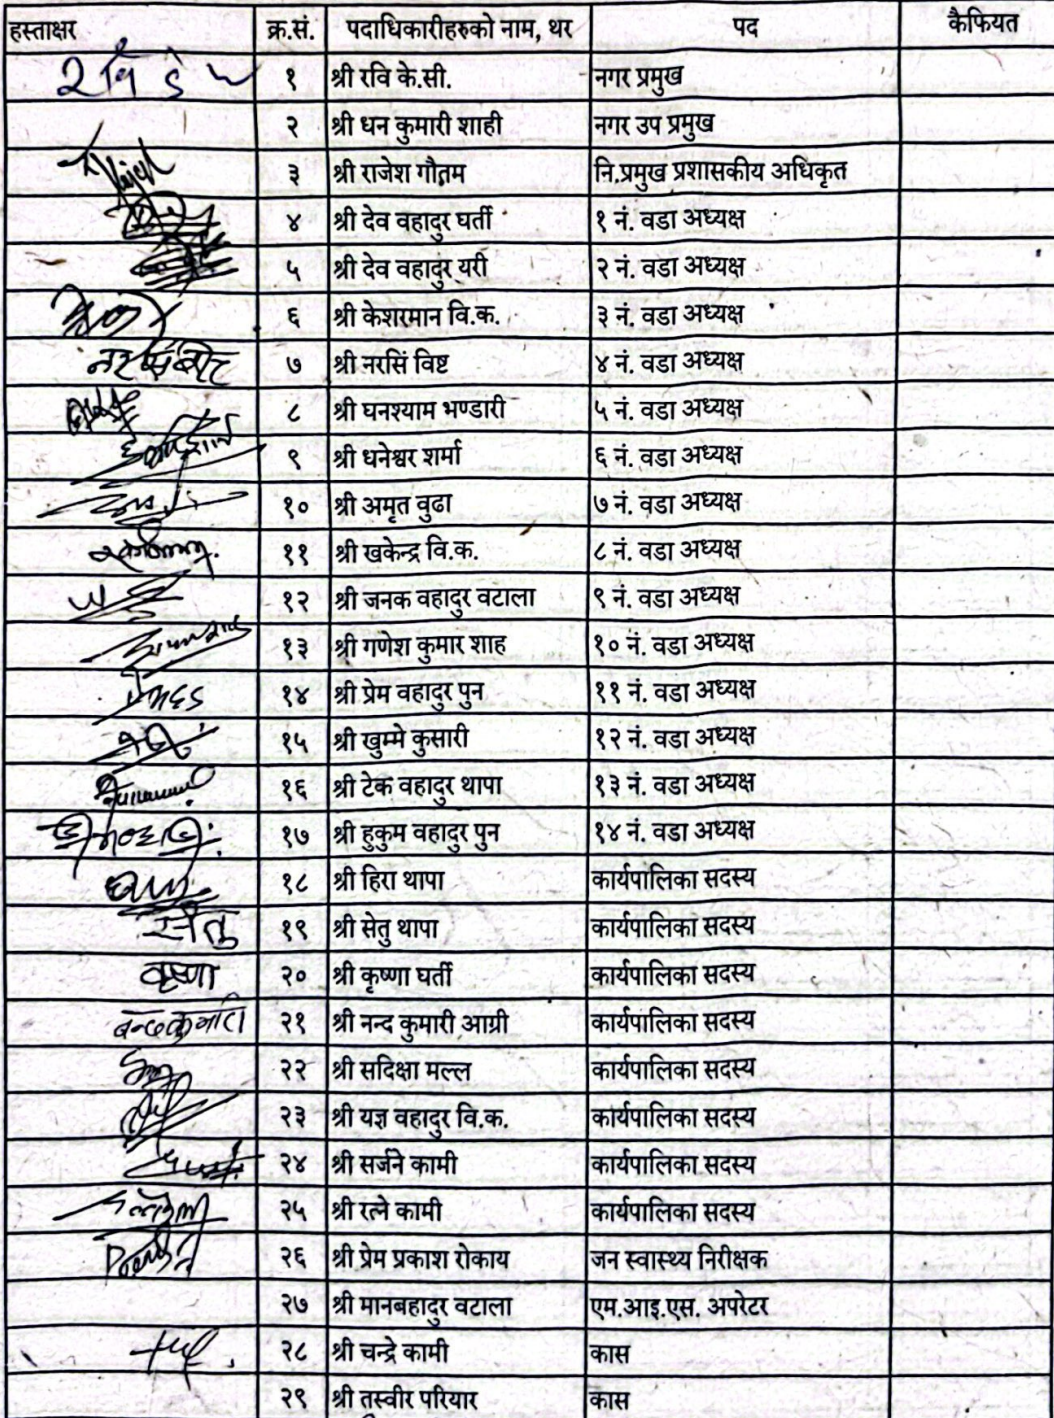 हस्ताक्षर क्र.सं. पदाधिकारीहरुको नाम, थर पद कैफियत
रवि १ श्री रवि के.सी. नगर प्रमुख
२ श्री धन कुमारी शाही नगर उप प्रमुख
३ श्री राजेश गौतम नि.प्रमुख प्रशासकीय अधिकृत
४ श्री देव वहादुर घर्ती १ नं. वडा अध्यक्ष
५ श्री देव वहादुर यरी २ नं. वडा अध्यक्ष
६ श्री केशरमान वि.क. ३ नं. वडा अध्यक्ष
७ श्री नरसिं विष्ट ४ नं. वडा अध्यक्ष
८ श्री घनश्याम भण्डारी ५ नं. वडा अध्यक्ष
९ श्री धनेश्वर शर्मा ६ नं. वडा अध्यक्ष
१० श्री अमृत वुढा ७ नं. वडा अध्यक्ष
११ श्री खकेन्द्र वि.क. ८ नं. वडा अध्यक्ष
१२ श्री जनक वहादुर वटाला ९ नं. वडा अध्यक्ष
१३ श्री गणेश कुमार शाह १० नं. वडा अध्यक्ष
१४ श्री प्रेम वहादुर पुन ११ नं. वडा अध्यक्ष
१५ श्री खुम्मे कुसारी १२ नं. वडा अध्यक्ष
१६ श्री टेक वहादुर थापा १३ नं. वडा अध्यक्ष
१७ श्री हुकुम वहादुर पुन १४ नं. वडा अध्यक्ष
१८ श्री हिरा थापा कार्यपालिका सदस्य
सेतु १९ श्री सेतु थापा कार्यपालिका सदस्य
कृष्णा २० श्री कृष्णा घर्ती कार्यपालिका सदस्य
२१ श्री नन्द कुमारी आग्री कार्यपालिका सदस्य
२२ श्री सदिक्षा मल्ल कार्यपालिका सदस्य
२३ श्री यज्ञ वहादुर वि.क. कार्यपालिका सदस्य
२४ श्री सर्जने कामी कार्यपालिका सदस्य
२५ श्री रत्ने कामी कार्यपालिका सदस्य
२६ श्री प्रेम प्रकाश रोकाय जन स्वास्थ्य निरीक्षक
२७ श्री मानबहादुर वटाला एम.आइ.एस. अपरेटर
२८ श्री चन्द्रे कामी कास
२९ श्री तस्वीर परियार कास